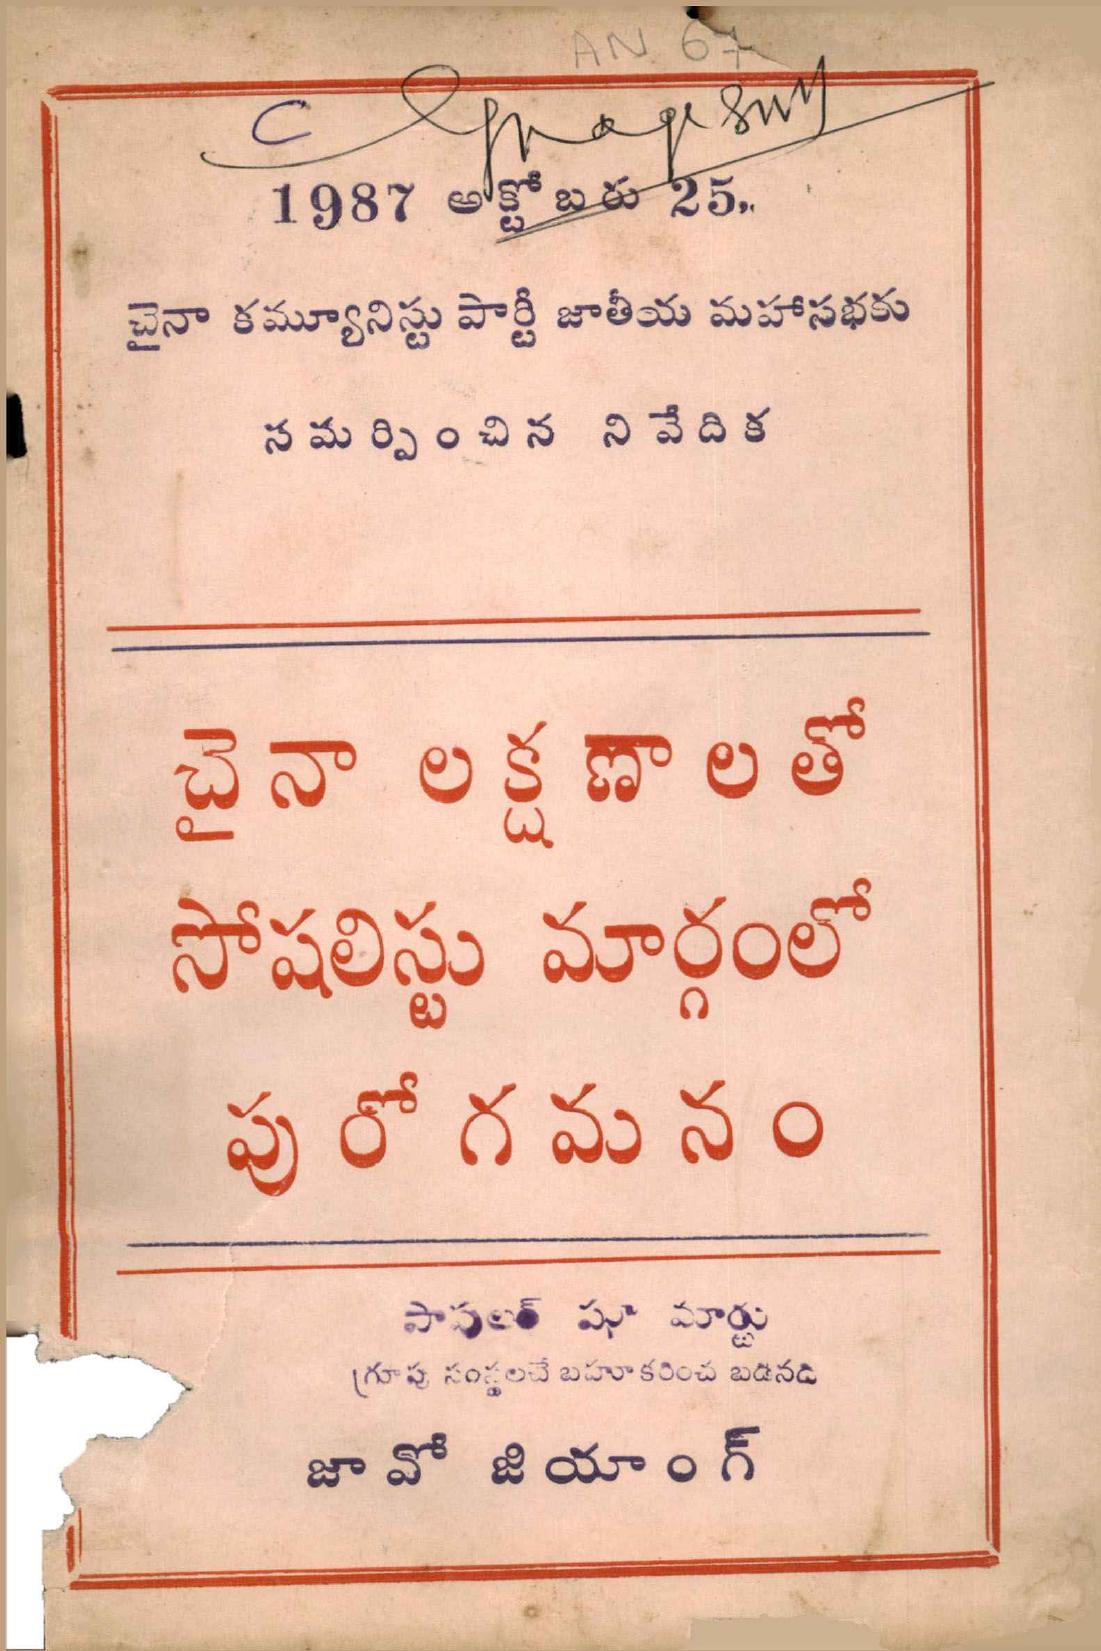 AN 67
C
1987 అక్టోబరు 25..
చైనా కమ్యూనిస్టు పార్టీ జాతీయ మహాసభకు
సమర్పించిన నివేదిక
చైనా లక్షణాలతో
సోషలిస్టు మార్గంలో
పురోగమనం
పాపులర్ షూ మార్టు
గ్రూపు సంస్థలచే బహూకరించ బడినది
జావో జియాంగ్